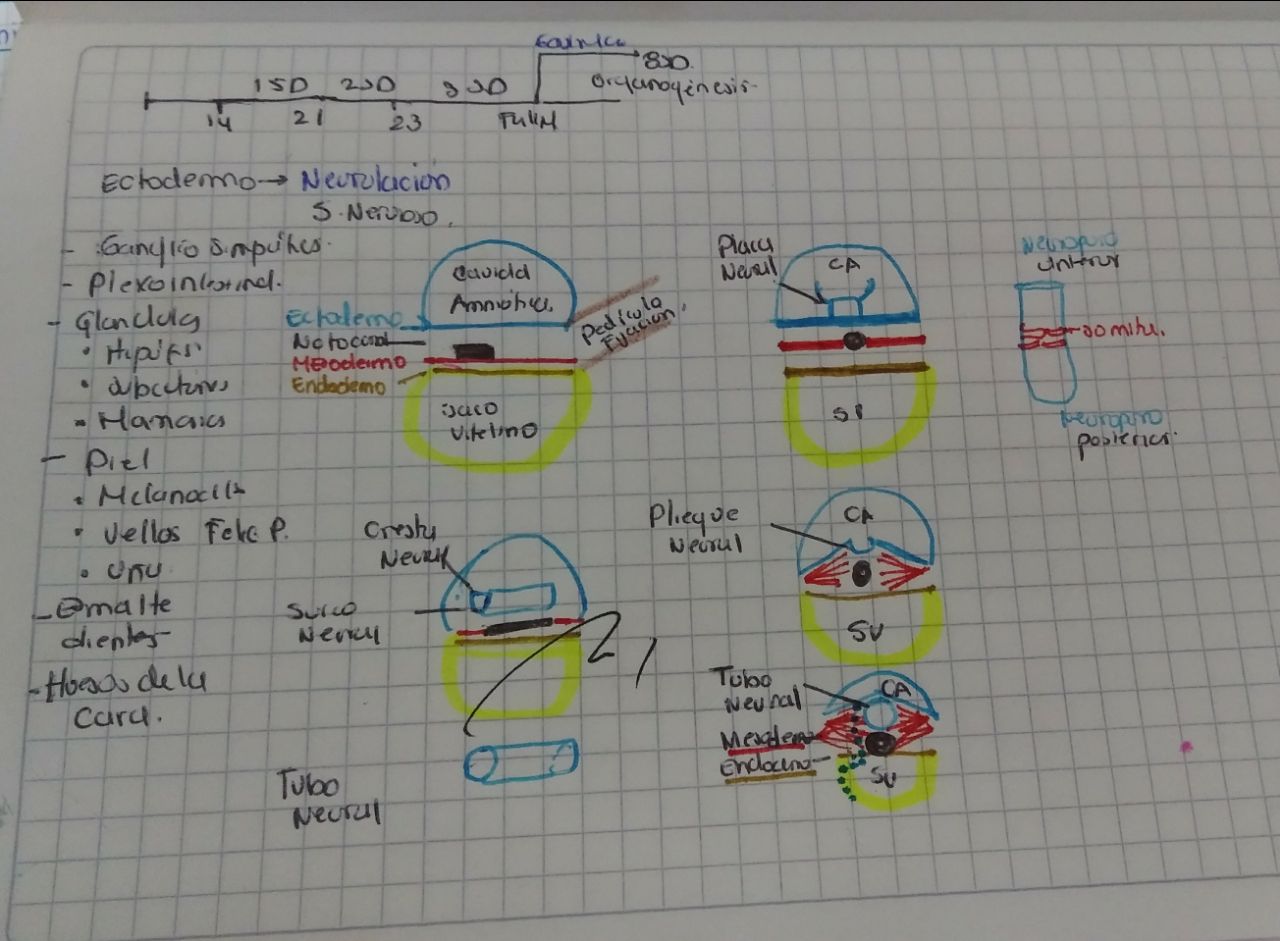 15D 20D
14 21 23
8SD.
Organogénesis.
Ectodermo → Neurulación
S. Nervioso.
- Plexo intestinal.
- Glandula
• Hipófisis
• Mamarias
- Piel
• Melanocitos
• Vellos Felc P.
• Uña
- Esmalte
dientes
- Huesos de la
Cara.
Cavidad
Amniótica.
Ectodermo
Notocorda
Mesodermo
Endodermo
Pedículo
Fijación.
Saco
Vitelino
Placa
Neural
CA
SV
Neuroporo
anterior
somita.
Neuroporo
posterior.
Cresta
Neural
Surco
Neural
Tubo
Neural
Pliegue
Neural
CA
SV
Tubo
Neural
CA
Mesodermo
Endodermo
SV